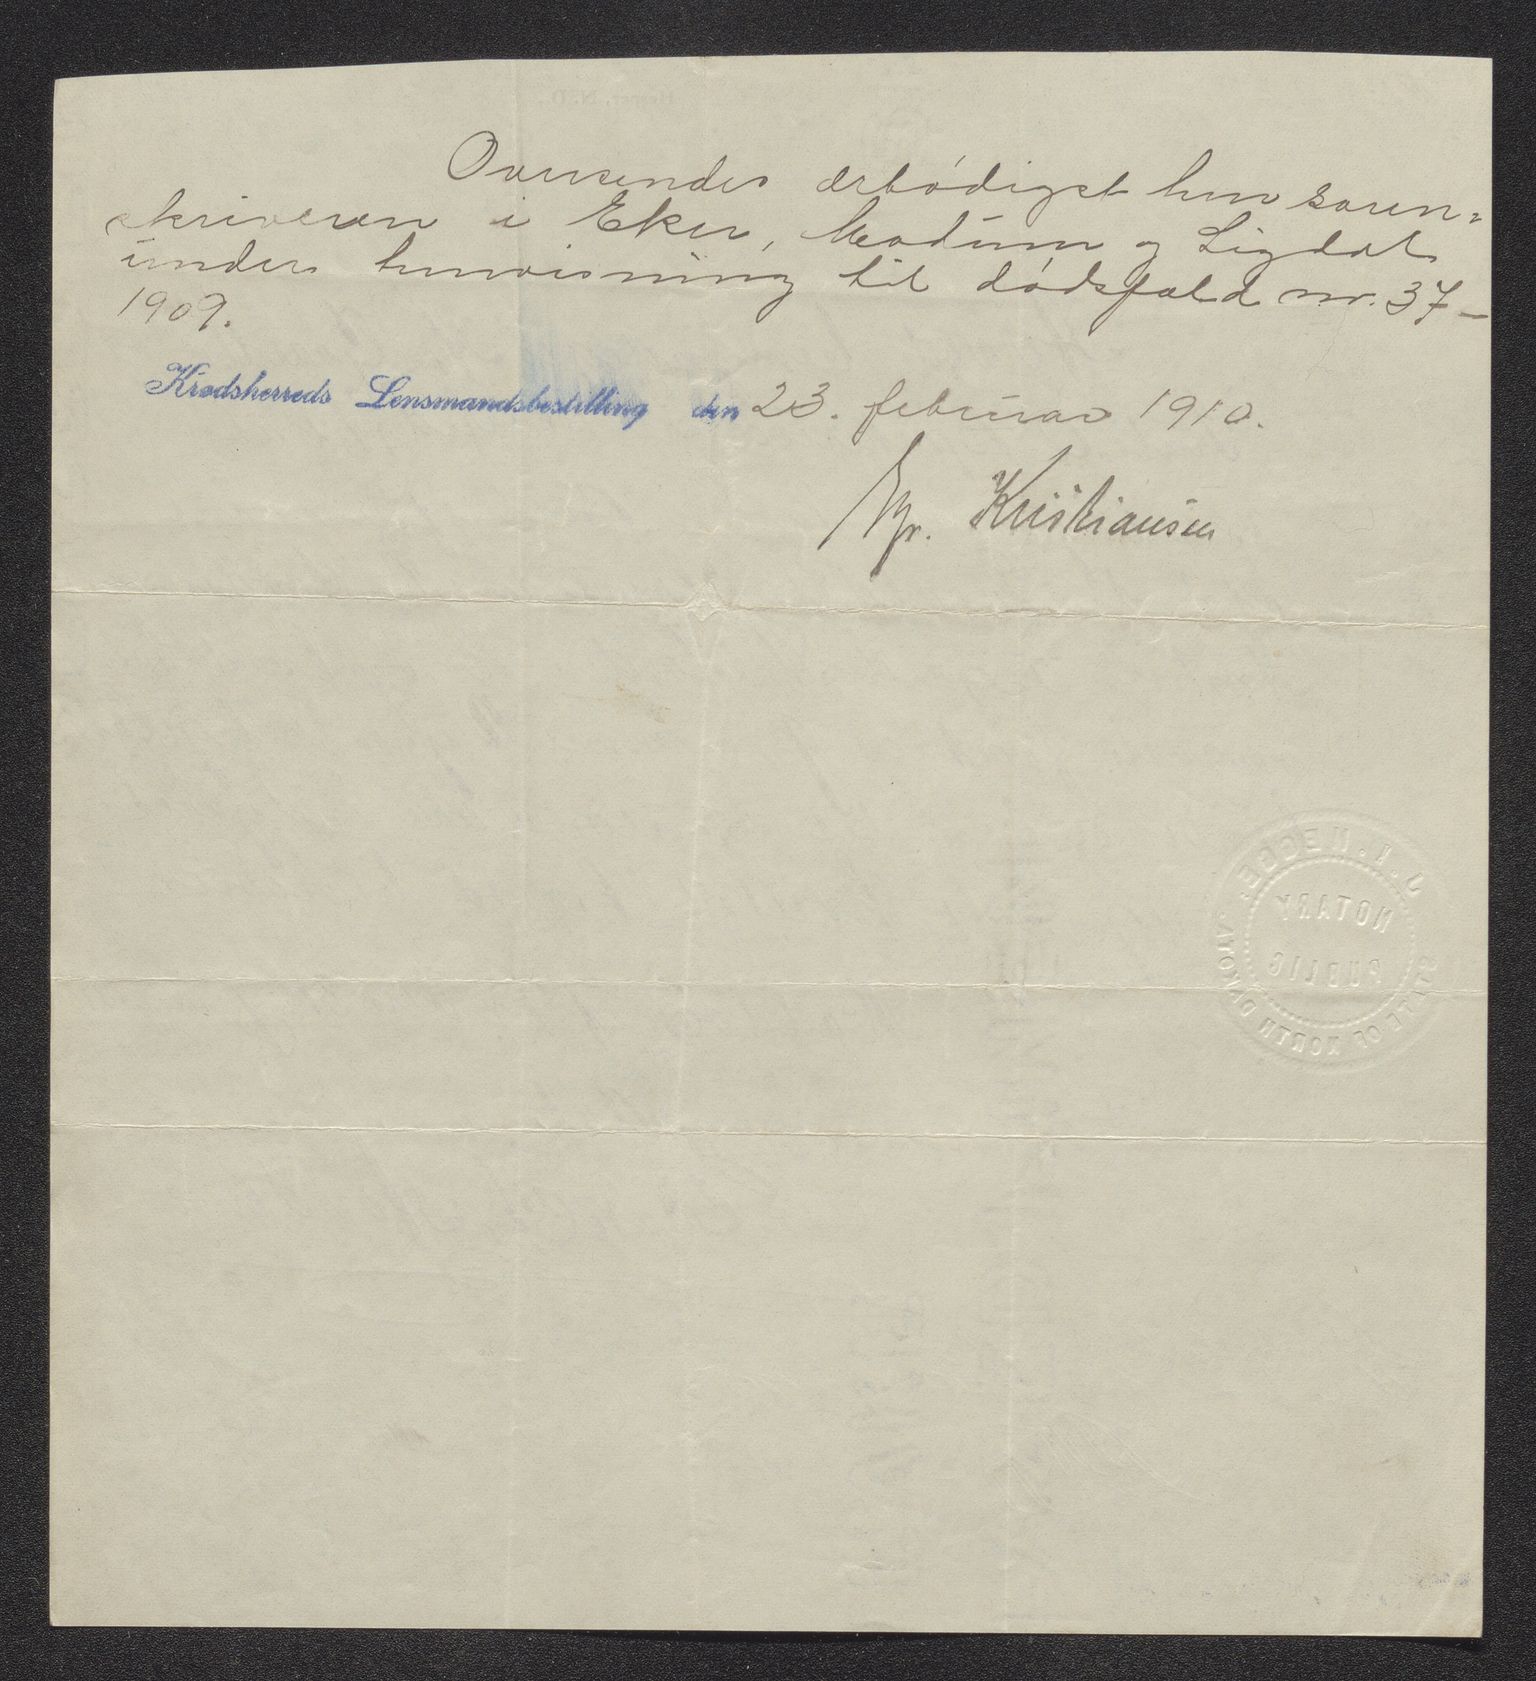 Oversendes ærbødigst herr soren=
skriveren i Eker, Modum og Sigdal
under henvisning til dødsfald nr. 37–
1909.
Krødsherreds Lensmandsbestilling den 23. februar 1910.
Kristiansen
J. I. HEGGE.
NOTARY
PUBLIC
STATE OF NORTH DAKOTA.